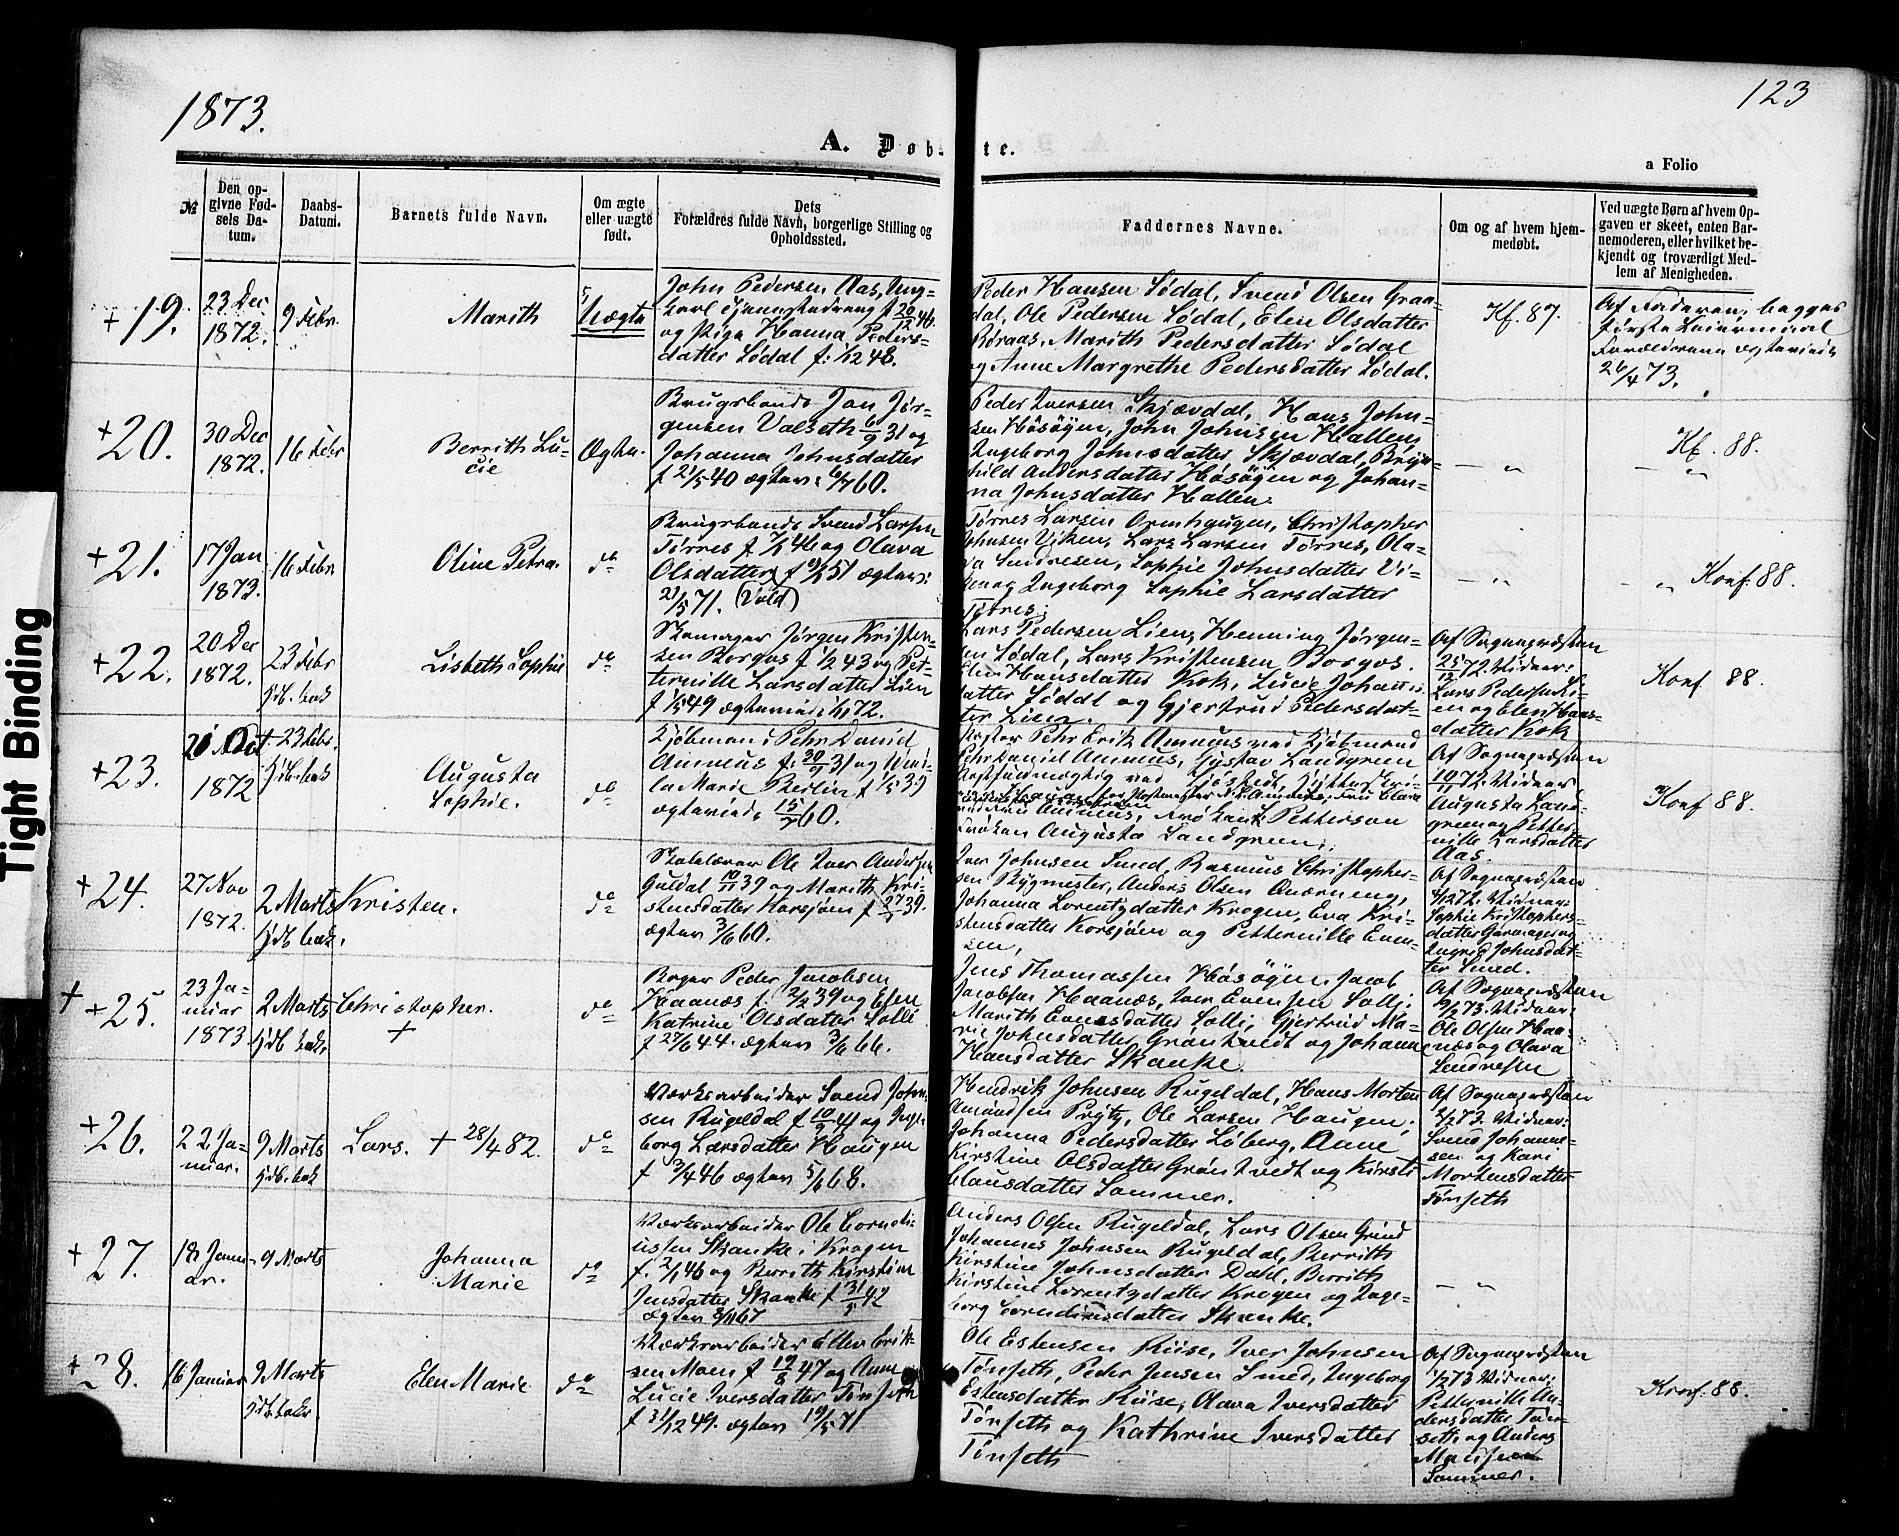 1873.
123
A. Døb
te.
a Folio
№
Den op-
givne Fød-
sels Da-
tum.
Daabs-
Datum.
Barnets fulde Navn.
Om ægte
eller uægte
født.
Dets
Forældres fulde Navn, borgerlige Stilling og
Opholdssted.
Faddernes Navne.
Om og af hvem hjem-
medøbt.
Ved uægte Børn af hvem Op-
gaven er skeet, enten Bar-
nemoderen, eller hvilket be-
kjendt og troværdigt Med-
lem af Menigheden.
+ 19.
23 Dec
1872.
9 Febr.
Marith
Uægte
John Pedersen Aas, Ung-
karl f 26/12 46
og Pige Hanna Peders-
datter Sødal f. 1/12 48.
Peder Hansen Sødal, Svend Olsen Graa-
dal, Ole Pedersen Sødal, Elen Olsdatter
Børaas, Marith Pedersdatter Sødal
og Anne Margrethe Pedersdatter Sødal.
Kf. 87.
Af Faderen, begges
første Leiermaal
Forældrene ægteviede
26/4 73.
+ 20.
30 Dec
1872.
16 Febr
Berrith Lu-
cie
Ægte.
Brugsbonde Jon Jør-
gensen Valseth 6/9 31 og
Johanna Johnsdatter
f 21/5 40 ægtev: 6/7 60.
Peder Iversen Skjævdal, Hans John-
sen Høsøyen, John Johnsen Hallen,
Ingeborg Johnsdatter Skjævdal, Bryn-
hild Andersdatter Høsøyen og Johan-
na Johnsdatter Hallen.
— „
Kf. 88.
— „
+ 21.
17 Jan
1873.
16 Febr
Oline Petra.
do
Brugsbonde Svend Larsen
Tørres f 7/1 46 og Olava
Olsdatter f 9/2 51 ægtev:
21/5 71. (Vold)
Tørres Larsen Ormhaugen, Christopher
Johnsen Viken, Lars Larsen Tørres, Ola-
va Sendresen, Sophie Johnsdatter Vi-
ken og Ingeborg Sophie Larsdatter
Tørres.
— „
— „ Konf: 88.
+ 22.
20 Dec
1872.
23 Febr
hjdb. bek
Lisbeth Sophie
do
Skomager Jørgen Kristen-
sen Borgos f 1/2 43 og Pet-
ternille Larsdatter Lien
f 1/5 49 72.
Lars Pedersen Lien, Henning Jørgen-
sen Sødal, Lars Kristensen Borgos.
Elen Hansdatter Kok, Lucie Johans-
datter Sødal og Gjertrud Pedersdat-
ter Lien.
Af Sognepræsten
25/12 72. Vidner:
Lars Pedersen Li-
en og Elen Hans-
datter Kok
Konf. 88.
+ 23.
1872
23 Febr.
hjdb. bek
Augusta
Sophie.
do
Kjøbmand Pehr Daniel
Ammus f. 30/9 31 og
Marie Berlin f 1/5 39
ægteviede 15/7 60.
Pehr Erik Ammus
Pehr Daniel Ammus, Gustav Landgren
Petterson
Frøken Augusta Landgren.
Af Sognepræsten
10/11 72. Vidner
Augusta Land-
green og Petter-
nille Larsdatter
Aas.
Konf 88.
+ 24.
27 Nov
1872.
2 Marts
hjdb bek.
Kristen.
do
Skolelærer Ole Iver Andersen
Guldal 10/11 39 og Marith Kri-
stensdatter Korsjøen f 27/1 39.
ægtev 3/6 60.
Iver Johnsen Smed, Rasmus Christopher-
sen Bygmester, Anders Olsen Qværneng,
Johanna Lorentzdatter Krogen, Eva Kri-
stensdatter Korsjøen og Petternille Even-
sen,
Af Sognepræsten
4/12 72. Vidner:
Sophie Kristophers-
datter Garmager og
Ingrid Johnsdat-
ter Smed.
+ + 25.
23 Ja-
nuar
1873.
2 Marts
hjdb bek.
Christopher.
+
do
Bager Peder Jacobsen
Haanæs f. 2/2 39 og Elen
Katrine Olsdatter Solli
f 27/6 44. ægtev 3/6 66.
Jens Thomassen Høsøyen. Jacob
Jacobsen Haanæs, Iver Evensen Solli,
Marith Evensdatter Solli, Gjertrud Ma-
rie Johnsdatter Grøntvedt og Johanne
Hansdatter Skanke.
Af Sognepræsten
9/2 73. Vidner:
Ole Olsen Haa-
næs og Olava
Sendresen
+ 26.
22 Ja-
nuar.
9 Marts
hjdb. bek
Lars. + 28/4 82.
do
Værksarbeider Svend John-
sen Rugeldal f 10/9 41 og Inge-
borg Larsdatter Haugen
f 3/4 46 ægtev 5/6 68.
Hendrik Johnsen Rugeldal, Hans Morten
Amundsen Prytz, Ole Larsen Haugen,
Johanna Pedersdatter Løberg, Anne
Kirstine Olsdatter Grøntvedt og Kirsti
Clausdatter Sommer.
Af Sognepræsten
2/2 73. Vidner:
Svend Johanne-
sen og Kari
Mortensdatter
Tønseth
+ 27.
18 Janu-
ar.
9 Marts
Johanna
Marie
do
Værksarbeider Ole Corneli-
ussen Skanke i Krogen
f. 2/1 46 og Berrith Kirstine
Jensdatter Skanke f 31/5 42
ægtev 3/11 67
Anders Olsen Rugeldal, Lars Olsen Grind
Johannes Johnsen Rugeldal, Berrith
Kirstine Johnsdatter Dahl, Berrith
Kirstine Lorentzdatter Krogen og Inge-
borg Corneliusdatter Skanke.
— „
+ 28.
16 Januar
9 Marts
hjdb. bek
Elen Marie
do
Værksarbeider Ellev Erik-
sen Moen f 19/8 47 og Anne
Lucie Iversdatter Tønseth
f 31/12 49. ægtev 19/5 71
Ole Estensen Riise, Iver Johnsen
Tønseth, Peder Jensen Smed, Ingeborg
Estensdatter Riise, Olava Iversdatter
Tønseth og Kathrine Iversdatter
Tønseth
Af Sognepræsten
1/2 73 Vidner:
Petternille An-
dersdatter Tøn-
seth og Anders
Sommer.
Konf. 88.
Tight Binding